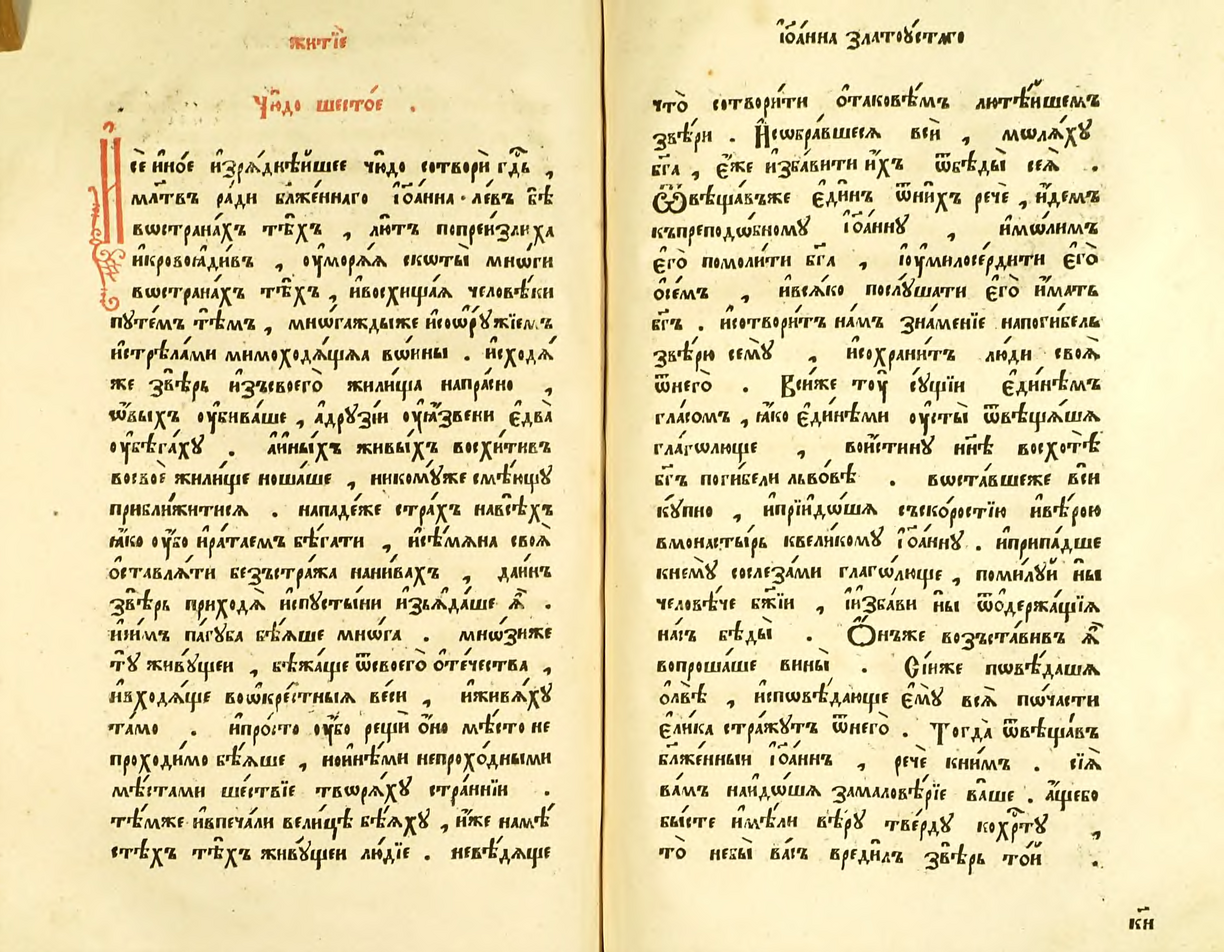 житїѐ
Чю́до шесто́е .
И сѐ и҆но́е и҆зрѧ́днѣйшее чю́до сотворѝ гд҇ь ,
мл҃твъ ра́ди бл҃же́ннаго і҆ѡа́нна · ле́въ бѣ̀
вѡстрана́хъ тѣ́хъ , лю́тъ попреи́злиха
и҆кровоꙗ́дивъ , ᲂу҆морѧ́ѧ скоты̀ мнѡ́ги
вѡстрана́хъ тѣ́хъ , и҆восхища́ѧ человѣ́ки
путе́мъ тѣ́мъ , мнѡга́ждыже и҆соѡрꙋ́жїемъ
и҆стрѣла́ми мимоходѧ́щаѧ вѡ́ины . и҆сходѧ́
же ѕвѣ́рь и҆зъсвоегѡ̀ жили́ща напра́сно ,
ѡ҆́выхъ ᲂу҆бива́ше , а҆дрꙋзі́и ᲂу҆ꙗ҆́звени є҆два̀
ᲂу҆бѣга́хꙋ . а҆и҆́ныхъ живы́хъ восхи́тивъ
восвоѐ жили́ще ноша́ше , никомꙋ́же смѣ́ющꙋ
прибли́житисѧ . нападе́же стра́хъ навсѣ́хъ
ꙗ҆́ко ᲂу҆́бо и҆ра́таемъ бѣ́гати , и҆сѣ́мѧна своѧ̀
ѡ҆ставлѧ́ти безъстра́жа нани́вахъ , даи҆́нъ
ѕвѣ́рь приходѧ̀ и҆спꙋсты́ни и҆зъꙗда́ше ѧ҆̀ .
и҆ни́мъ па́гꙋба бѣ́ѧше мнѡ́га . мнѡ́зиже
тꙋ̀ живꙋ́щеи , бѣжа́ще ѿсвоегѡ̀ ѻ҆те́чества ,
и҆вхо́дѧще воѡкре́стныѧ ве́си , и҆живѧ́хꙋ
та́мо . и҆про́сто ᲂу҆́бо рещѝ ѻ҆́но мѣ́сто не
проходи́мо бѣ́ѧше , нои҆нѣ́ми непрохо́дными
мѣ́стами ше́ствїе творѧ́хꙋ стра́ннїи .
тѣ́мже и҆впеча́ли вели́цѣ бѣ́ѧхꙋ , и҆́же намѣ́
стѣхъ тѣ́хъ живꙋ́щеи лю́дїе . невѣ́дѧще
і҆ѡа́нна златоꙋ́стаго
что̀ сотвори́ти ѡ҆такѡвѣ́мъ лютѣ́йшемъ
ѕвѣ́ри . И҆соѡбра́вшесѧ всѝ , молѧ́хꙋ
бг҃а , є҆́же и҆зба́вити и҆́хъ ѿбѣды̀ сеѧ̀ .
Ѿвѣща́въже є҆ди́нъ ѿни́хъ речѐ , и҆́демъ
къпреподо́бномꙋ і҆ѡа́ннꙋ , и҆мо́лимъ
є҆го̀ помоли́ти бг҃а , і҆ᲂу҆милосе́рдити є҆го̀
ѡ҆се́мъ , и҆всѧ́ко послꙋ́шати є҆го̀ и҆́мать
бг҃ъ . и҆сотвори́тъ на́мъ зна́менїе напоги́бель
ѕвѣ́рю семꙋ̀ , и҆сохрани́тъ лю́ди своѧ̀
ѿнего̀ . Всѝже тꙋ̀ сꙋ́щїи є҆ди́нѣмъ
гла́сомъ , ꙗ҆́ко є҆ди́нѣми ᲂу҆сты̀ ѿвѣща́ша
глаго́люще , вои́стинꙋ нн҃ѣ восхотѣ̀
бг҃ъ поги́бели льво́вѣ . воста́вшеже всѝ
кꙋ́пно , и҆прїидо́ша съско́ростїю и҆вѣ́рою
вмонасты́рь квели́комꙋ і҆ѡа́ннꙋ . и҆припа́дше
кнемꙋ̀ сослеза́ми глаго́люще , поми́лꙋй ны̀
человѣ́че бж҃їи , і҆и҆зба́ви ны̀ ѿѡдержа́щїѧ
на́съ бѣды̀ . Ѻ҆́нъже возъста́вивъ ѧ҆̀
вопроша́ше вины̀ . Сі́иже повѣ́даша
ѡ҆львѣ̀ , и҆сповѣ́дающе є҆мꙋ̀ всѧ̀ поча́сти
є҆ли́ка стра́жꙋтъ ѿнего̀ . Тогда̀ ѿвѣща́въ
бл҃же́нныи і҆ѡа́ннъ , речѐ кни́мъ . сїѧ̀
ва́мъ наидо́ша замаловѣ́рїе ва́ше . а҆́щебо
бы́сте и҆мѣ́ли вѣ́рꙋ тве́рдꙋ кохр҇тꙋ̀ ,
то̀ небы̀ ва́съ вреди́лъ ѕвѣ́рь то́й .
к҃и